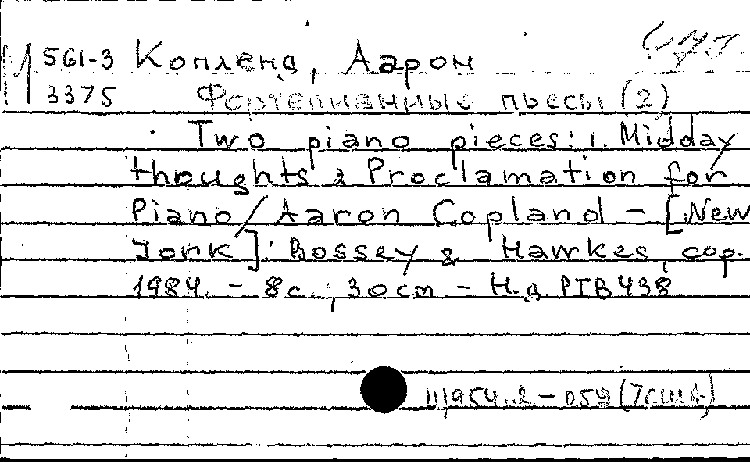 М 561-3 Копленд, Аарон
3375 Фортепианные пьесы (2)
Two piano pieces: 1. Midday
thoughts 2 Proclamation for
Piano / Aaron Copland - [New
Jork]: Bossey & Hawkes, cop.
1984. - 8с.; 30cm - Н.д. PIB 438